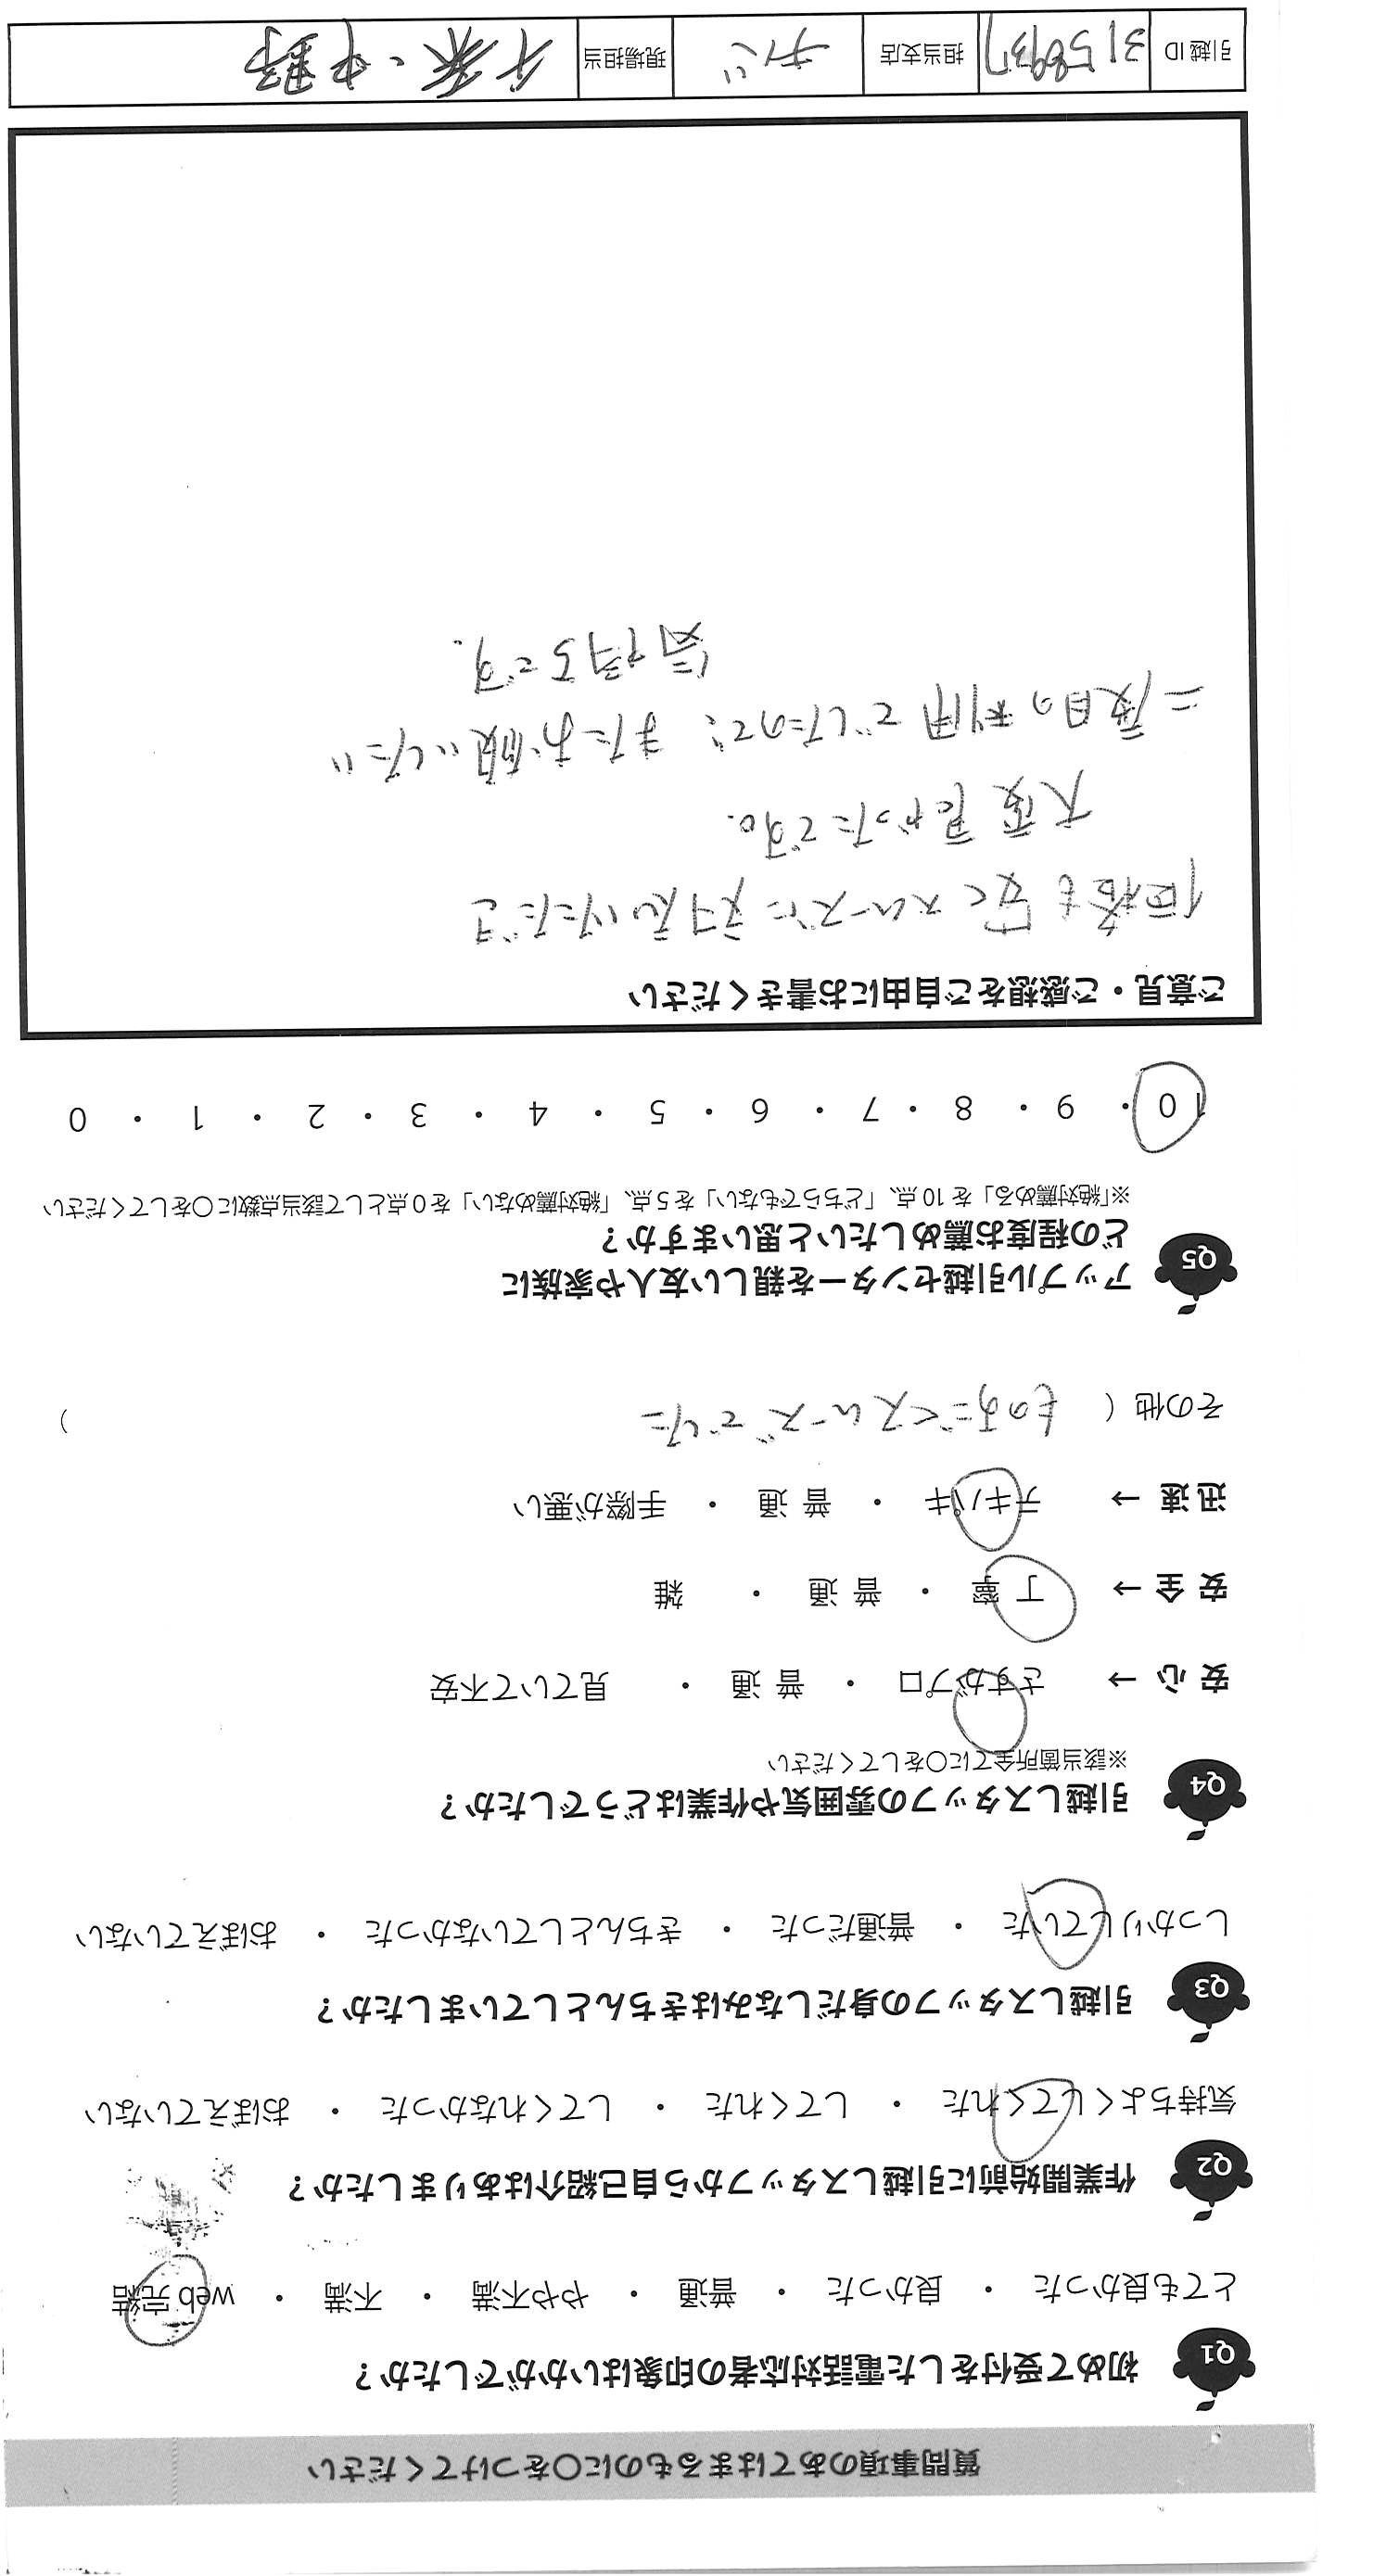 質問事項のあてはまるものに○をつけてください
Q1 初めて受付をした電話対応者の印象はいかがでしたか？
とても良かった ・ 良かった ・ 普通 ・ やや不満 ・ 不満 ・ web 完結
Q2 作業開始前に引越しスタッフから自己紹介はありましたか？
気持ちよくしてくれた ・ してくれた ・ してくれなかった ・ おぼえていない
Q3 引越しスタッフの身だしなみはきちんとしていましたか？
しっかりしていた ・ 普通だった ・ きちんとしていなかった ・ おぼえていない
Q4 引越しスタッフの雰囲気や作業はどうでしたか？
※該当箇所全てに○をしてください
安 心 → さすがプロ ・ 普 通 ・ 見ていて不安
安 全 → 丁 寧 ・ 普 通 ・ 雑
迅 速 → テキパキ ・ 普 通 ・ 手際が悪い
その他 ( ものすごくスムーズでした )
Q5 アップル引越センターを親しい友人や家族に
どの程度お薦めしたいと思いますか？
※「絶対薦める」を 10 点、「どちらでもない」を 5 点、「絶対薦めない」を 0 点として該当点数に○をしてください
10 ・ 9 ・ 8 ・ 7 ・ 6 ・ 5 ・ 4 ・ 3 ・ 2 ・ 1 ・ 0
ご意見・ご感想をご自由にお書きください
価格も安くスムーズに対応いただき
大変良かったです。
二度目の利用でしたので、またお願いしたい
気持ちです。
引越 ID 3158937 担当支店 チバ 現場担当 千葉・中野